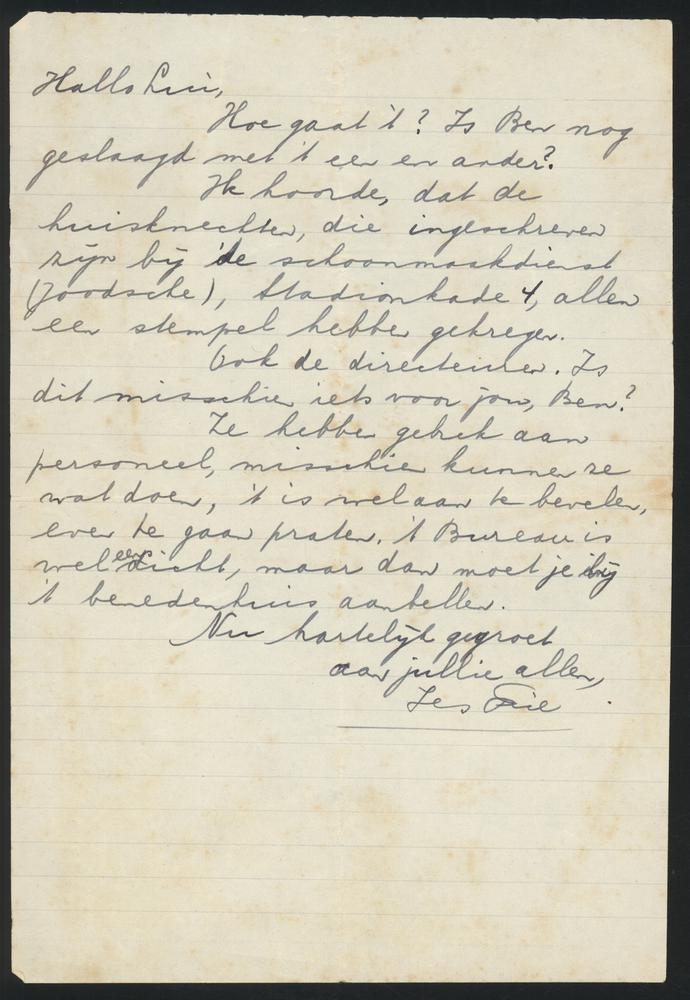 Hallo Lui,
Hoe gaat 't? Is Ben nog
geslaagd met 't een en ander?
Ik hoorde, dat de
huisknechten, die ingeschreven
zijn bij de schoonmaakdienst
(Joodsche), Stadionkade 4, allen
een stempel hebben gekregen.
Ook de directeuren. Is
dit misschien iets voor jou, Ben?
Ze hebben gebrek aan
personeel, misschien kunnen ze
wat doen, 't is wel aan te bevelen,
even te gaan praten. 't Bureau is
wel eens dicht, maar dan moet je bij
't benedenhuis aanbellen.
Nu hartelijk gegroet
aan jullie allen,